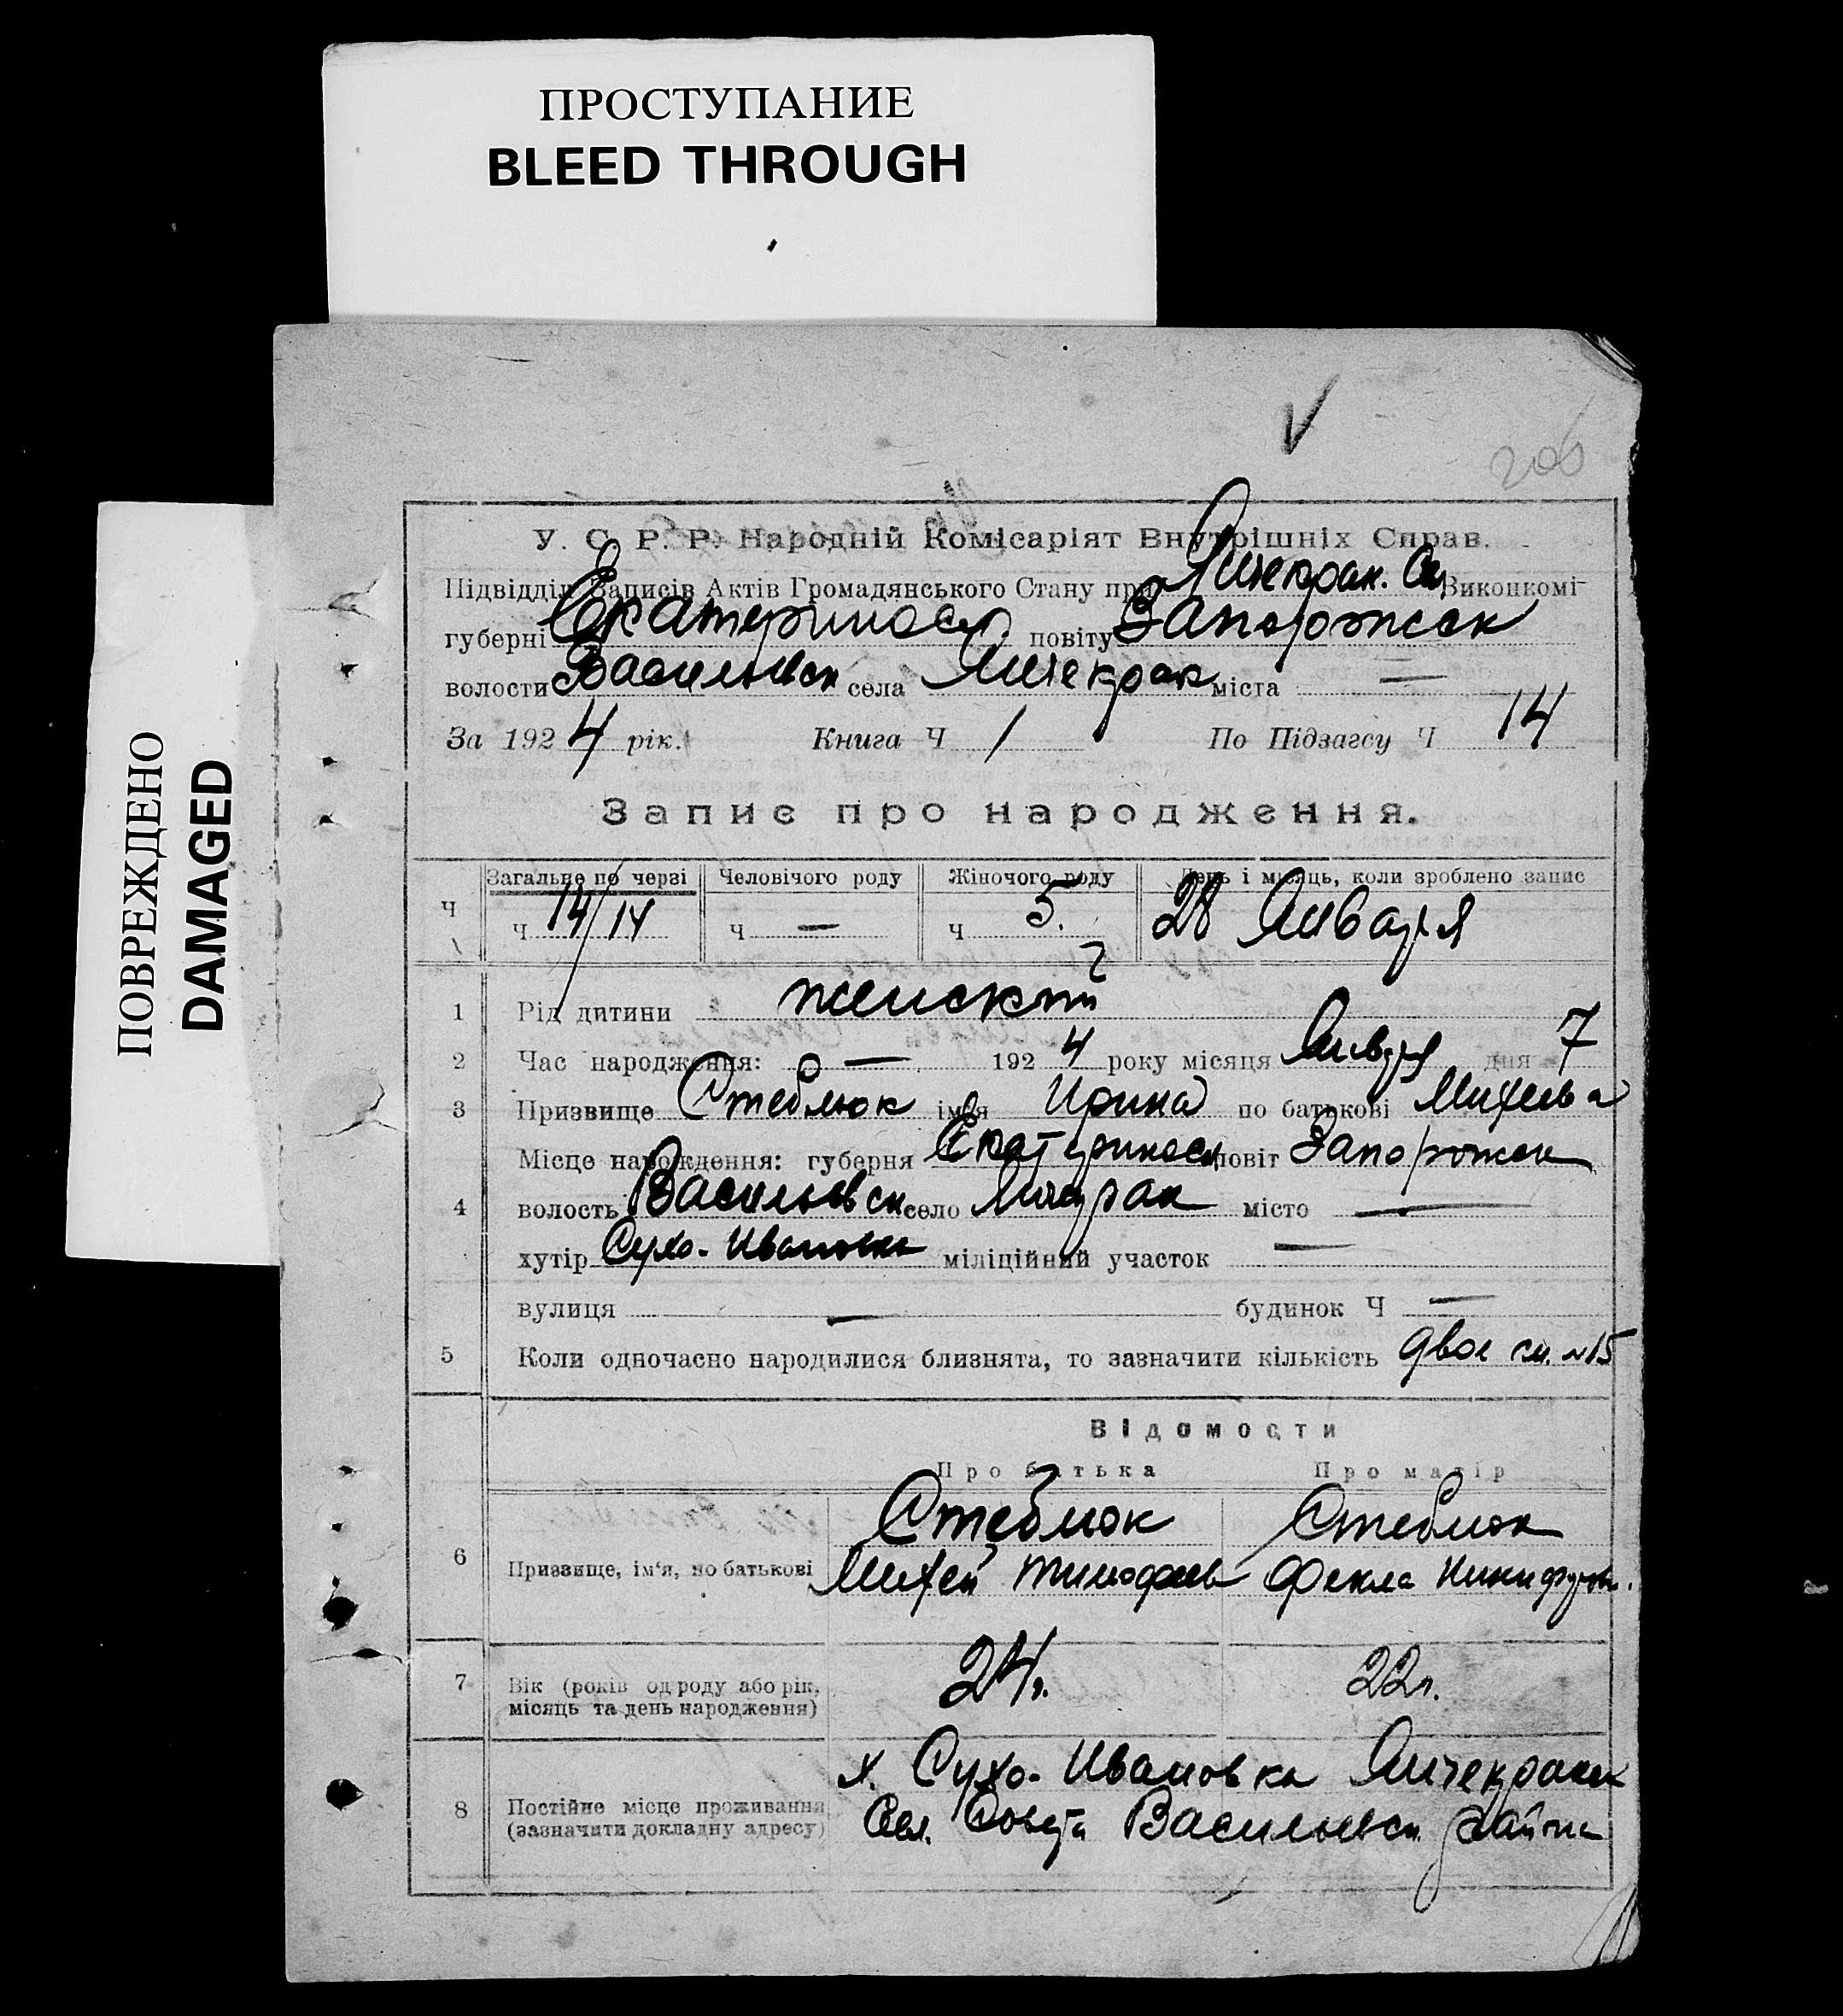 ПРОСТУПАНИЕ
BLEED THROUGH
ПОВРЕЖДЕНО
DAMAGED
206
У. С. Р. Р. Народній Комісаріят Внутрішніх Справ.
Підвідділ Записів Актів Громадянського Стану при Янчекрак. Виконкомі
губерні Екатериносл. повіту Запорожск
волости Васильевск села Янчекрак міста —
За 1924 рік. Книга Ч 1 По Підзагсу Ч 14
Запис про народження.
Загальне по черзі Человічого роду Жіночого роду День і місяць, коли зроблено запис
Ч ч 14/14 ч — ч 5. 28 Января
1 Рід дитини женский
2 Час народження: — 1924 року місяця Январ дня 7
3 Призвище Стеблюк імя Ирина по батькові Михеева
Місце народження: губерня Екатериносл повіт Запорожск
4 волость Васильевск село Янчекрак місто —
хутір Сухо-Ивановка міліційний участок —
вулиця — будинок Ч —
5 Коли одночасно народилися близнята, то зазначити кількість двое см. №15
Відомости
Про батька Про матір
Стеблюк Стеблюк
6 Призвище, ім'я, по батькові Михей Тимофеев Фекла Никифоров.
7 Вік (років од роду або рік, 24г. 22г.
місяць та день народження)
х. Сухо-Ивановка Янчекракск
8 Постійне місце проживання
(зазначити докладну адресу) Сел. Совета Васильевск. района